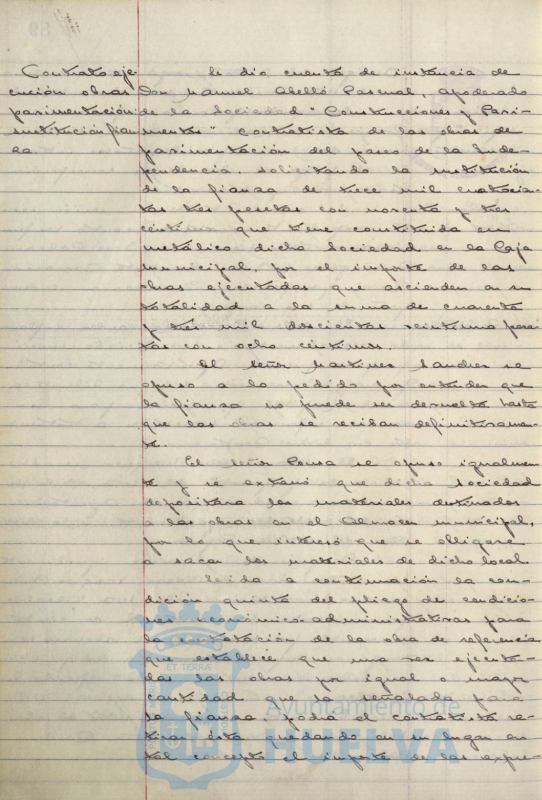 Contrato eje-
cución obras
pavimentación
restitución fian-
za.
Se dio cuenta de instancia de
Don Manuel Abelló Pascual, apoderado
de la Sociedad "Construcciones y Pavi-
mentos" contratista de las obras de
pavimentación del paseo de la Inde-
pendencia, solicitando la restitución
de la fianza de trece mil cuatrocien-
tas tres pesetas con noventa y tres
céntimos que tiene constituida en
metálico dicha Sociedad en la Caja
municipal, por el importe de las
obras ejecutadas que ascienden en su
totalidad a la suma de cuarenta
y tres mil doscientas veintiuna pese-
tas con ocho céntimos.
El Señor Martínez Sánchez se
opuso a lo pedido por entender que
la fianza no puede ser devuelta hasta
que las obras se reciban definitivamen-
te.
El Señor Pousa se opuso igualmen-
te y se extrañó que dicha Sociedad
depositara los materiales destinados
a las obras en el Almacen municipal,
por lo que interesó que se obligare
a sacar los materiales de dicho local
Leida a continuación la con-
dición quinta del pliego de condicio-
nes económico-administrativas para
la contratación de la obra de referencia
que establece que una vez ejecuta-
das las obras por igual o mayor
cantidad que la señalada para
la fianza, podrá el contratista re-
tirar ésta quedando en su lugar en
tal concepto el importe de las expre-
ET TERRA
Ayuntamiento de
HUELVA